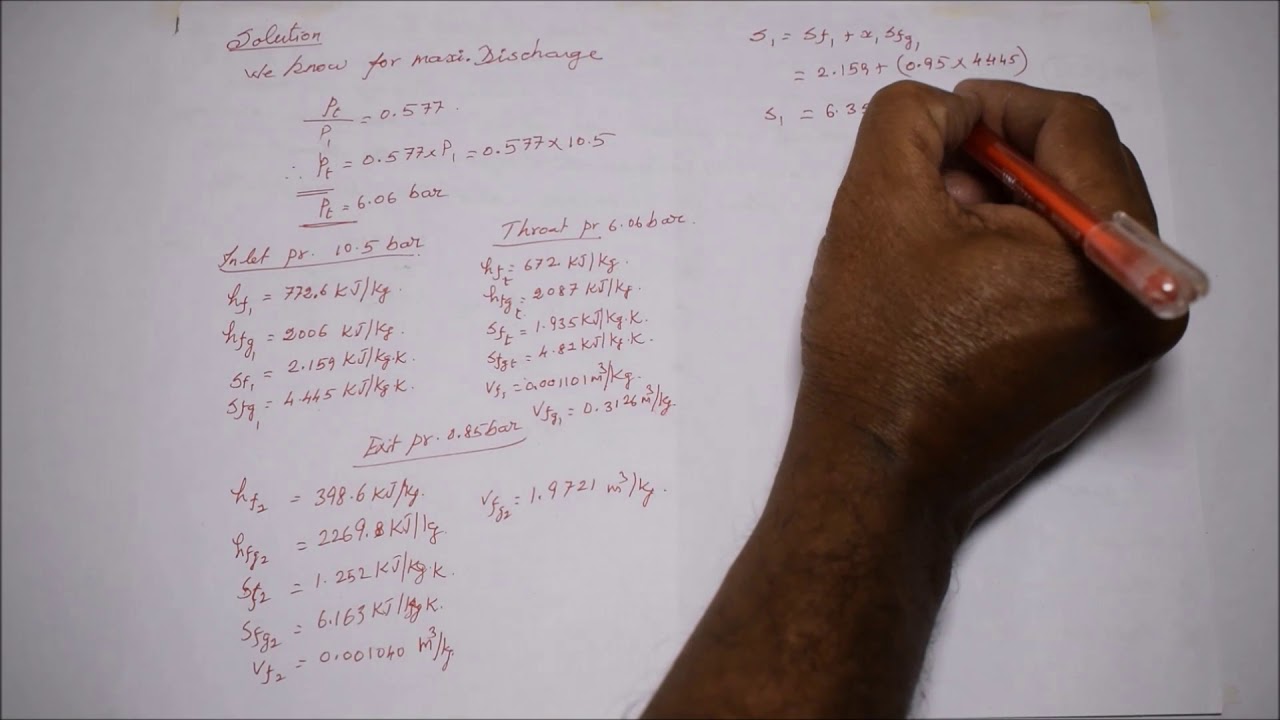 Solution
We know for maxi. Discharge
Pt/P1 = 0.577.
∴ Pt = 0.577 x P1 = 0.577 x 10.5
Pt = 6.06 bar
Inlet pr. 10.5 bar
hf1 = 772.6 KJ/kg.
hfg1 = 2006 KJ/kg.
sf1 = 2.159 KJ/kg.K.
sfg1 = 4.445 KJ/kg.K.
Throat pr 6.06 bar.
hft = 672 KJ/kg.
hfgt = 2087 KJ/kg.
sft = 1.935 KJ/kg.K.
sfgt = 4.82 KJ/kg.K.
Vf1 = 0.001101 m³/kg.
Vfg1 = 0.3126 m³/kg
Exit pr. 0.85 bar
hf2 = 398.6 KJ/kg.
hfg2 = 2269.8 KJ/kg
sf2 = 1.252 KJ/kg.K.
sfg2 = 6.163 KJ/kg K.
Vf2 = 0.001040 m³/kg
Vfg2 = 1.9721 m³/kg.
s1 = sf1 + x1 sfg1
= 2.159 + (0.95 x 4.445)
s1 = 6.3